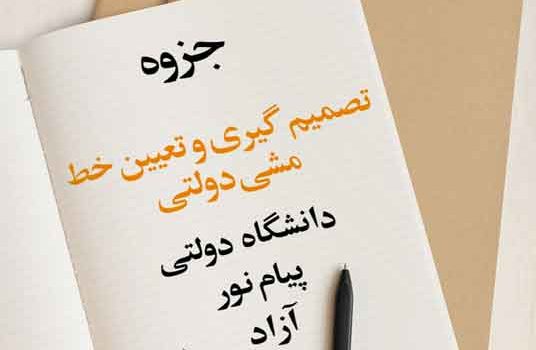 جزوه
تصمیم گیری و تعیین خط
مشی دولتی
دانشگاه دولتی
پیام نور
آزاد